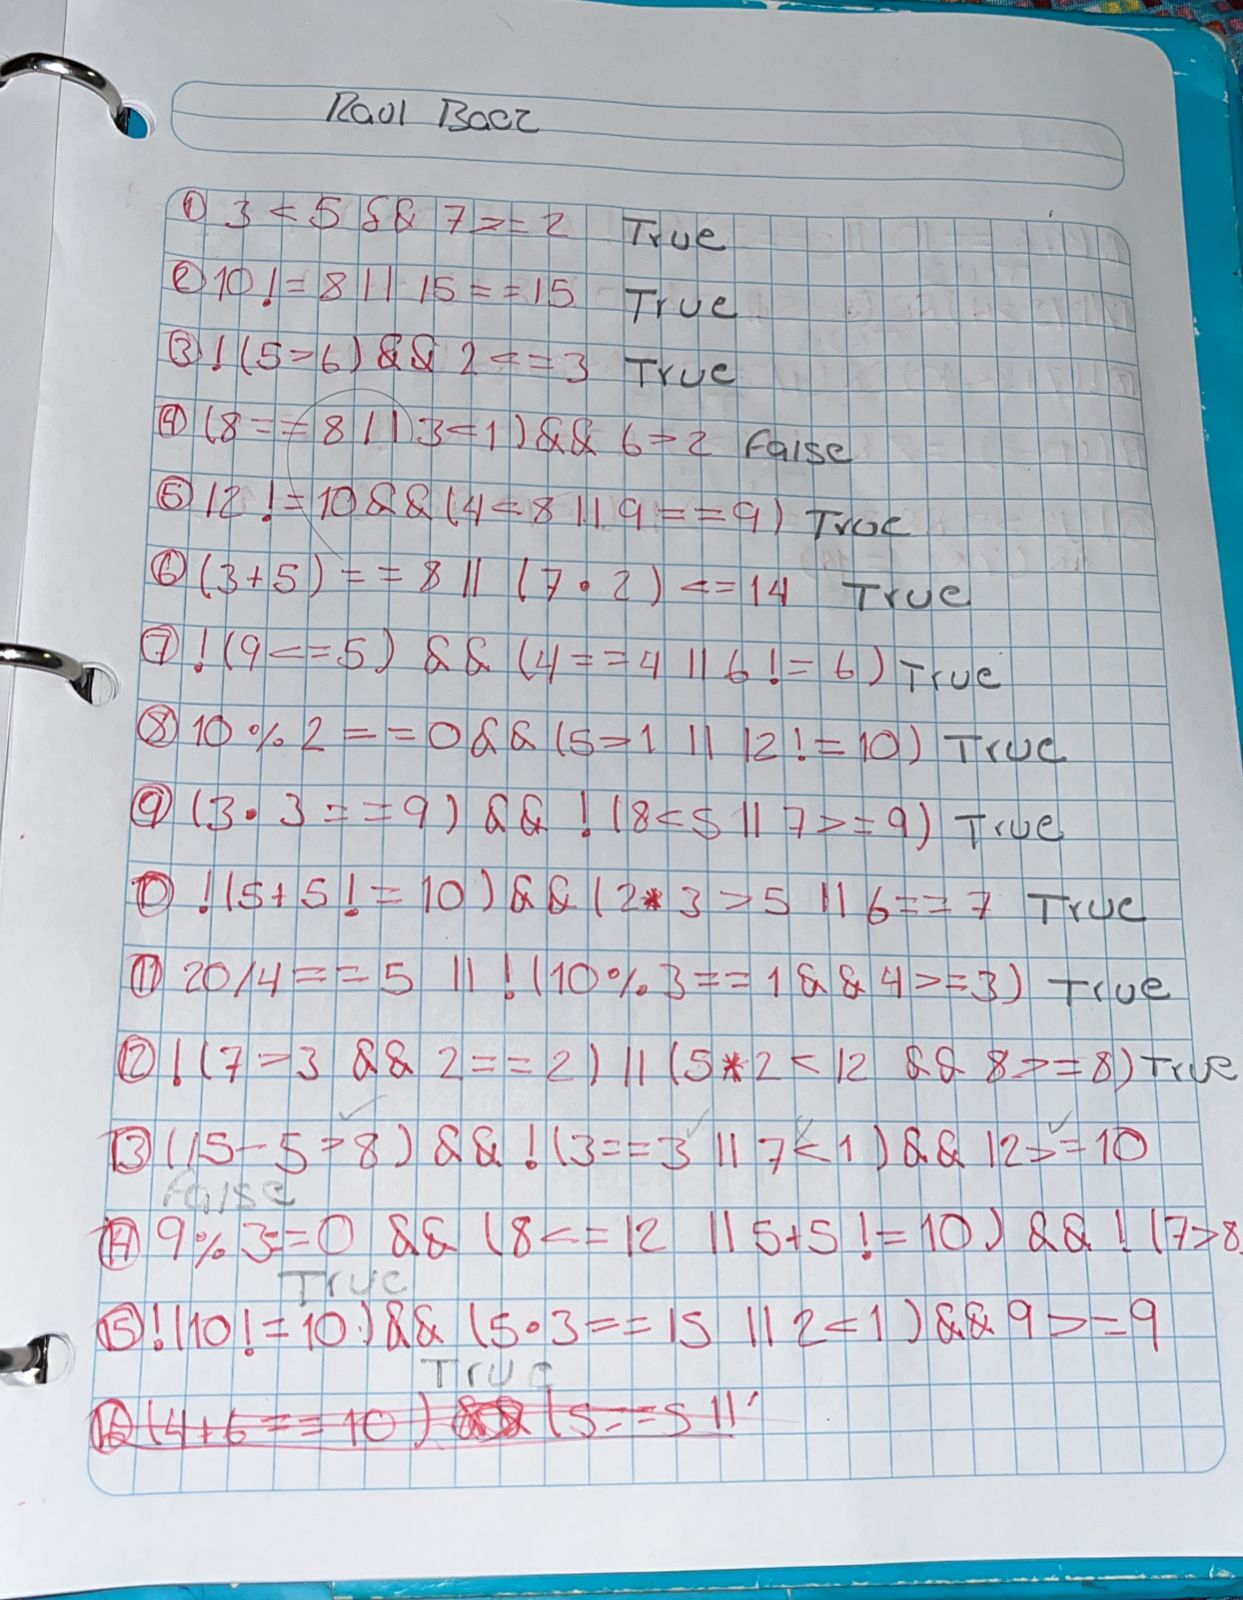 Raul Baez
① 3 < 5 && 7 >= 2 True
② 10 != 8 || 15 == 15 True
③ !(5>6) && 2 <= 3 True
④ (8 == 8 || 3<1) && 6 > 2 False
⑤ 12 != 10 && (4 < 8 || 9 == 9) True
⑥ (3+5) == 8 || (7 • 2) <= 14 True
⑦ !(9<=5) && (4==4 || 6 != 6) True
⑧ 10 % 2 == 0 && (5>1 || 12 != 10) True
⑨ (3 • 3 == 9) && !(8<5 || 7 >= 9) True
⑩ !(5+5 != 10) && (2*3 > 5 || 6 == 7 True
⑪ 20/4 == 5 || !(10 % 3 == 1 && 4 >= 3) True
⑫ !(7>3 && 2 == 2) || (5*2 < 12 && 8 >= 8) True
⑬ (15 - 5 > 8) && !(3 == 3 || 7 < 1) && 12 >= 10
False
⑭ 9 % 3 == 0 && (8 <= 12 || 5+5 != 10) && !(7>8)
True
⑮ !(10 != 10) && (5 • 3 == 15 || 2 < 1) && 9 >= 9
True
⑯ (4+6 == 10) && (5 == 5 ||